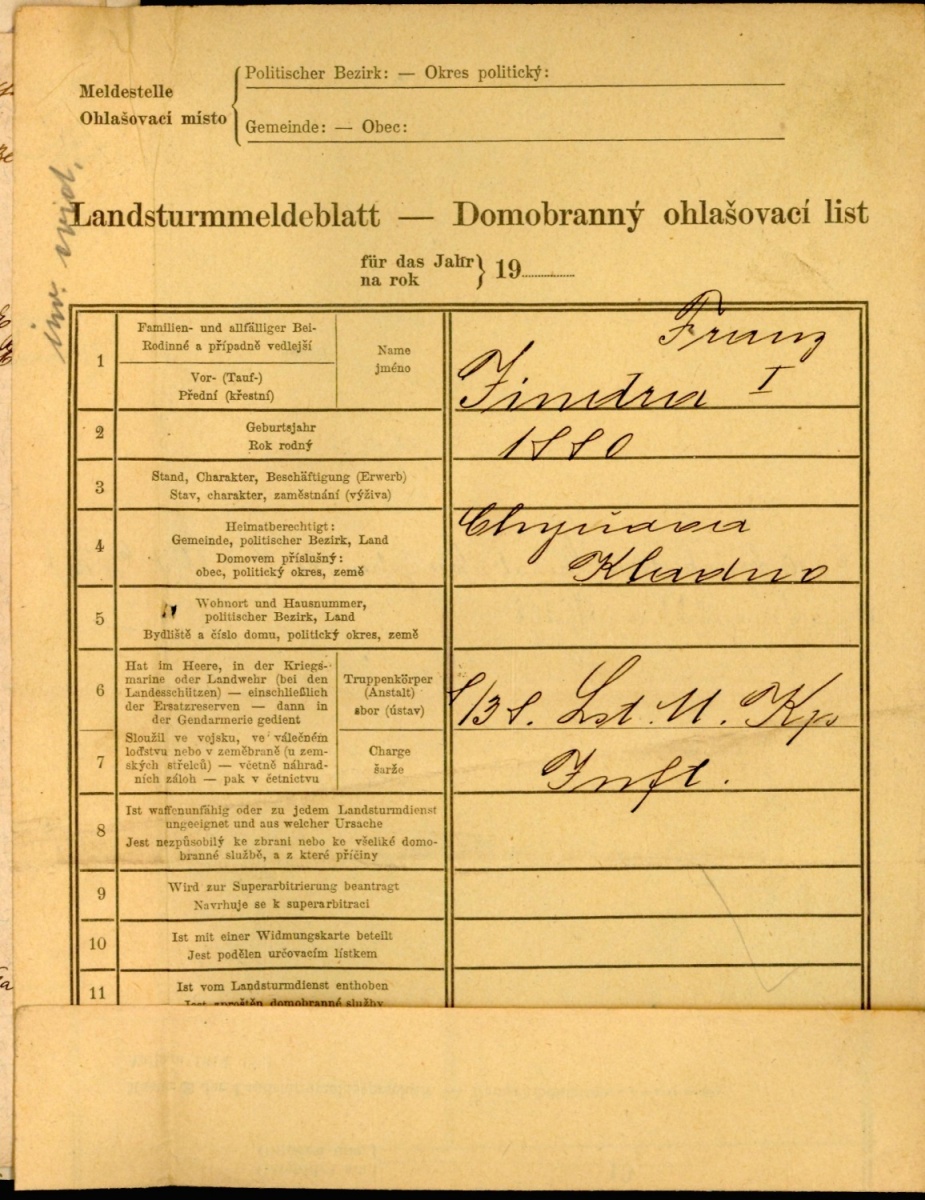 Politischer Bezirk: — Okres politický:
Meldestelle
Ohlašovací místo
Gemeinde: — Obec:
inv. evid.
Landsturmmeldeblatt — Domobranný ohlašovací list
für das Jahr
na rok
} 19
1
Familien- und allfälliger Bei-
Rodinné a případně vedlejší
Vor- (Tauf-)
Přední (křestní)
Name
jméno
Franz
Jindra I
2
Geburtsjahr
Rok rodný
1880
3
Stand, Charakter, Beschäftigung (Erwerb)
Stav, charakter, zaměstnání (výživa)
4
Heimatberechtigt:
Gemeinde, politischer Bezirk, Land
Domovem příslušný:
obec, politický okres, země
Chyňava
Kladno
5
Wohnort und Hausnummer,
politischer Bezirk, Land
Bydliště a číslo domu, politický okres, země
6
Hat im Heere, in der Kriegs-
marine oder Landwehr (bei den
Landesschützen) — einschließlich
der Ersatzreserven — dann in
der Gendarmerie gedient
Truppenkörper
(Anstalt)
sbor (ústav)
8/38. Lst. M. Kp
7
Sloužil ve vojsku, ve válečném
loďstvu nebo v zeměbraně (u zem-
ských střelců) — včetně náhrad-
ních záloh — pak v četnictvu
Charge
šarže
Inft.
8
Ist waffenunfähig oder zu jedem Landsturmdienst
ungeeignet und aus welcher Ursache
Jest nezpůsobilý ke zbrani nebo ke všeliké domo-
branné službě, a z které příčiny
9
Wird zur Superarbitrierung beantragt
Navrhuje se k superarbitraci
10
Ist mit einer Widmungskarte beteilt
Jest podělen určovacím lístkem
11
Ist vom Landsturmdienst enthoben
Jest sproštěn domobranné služby